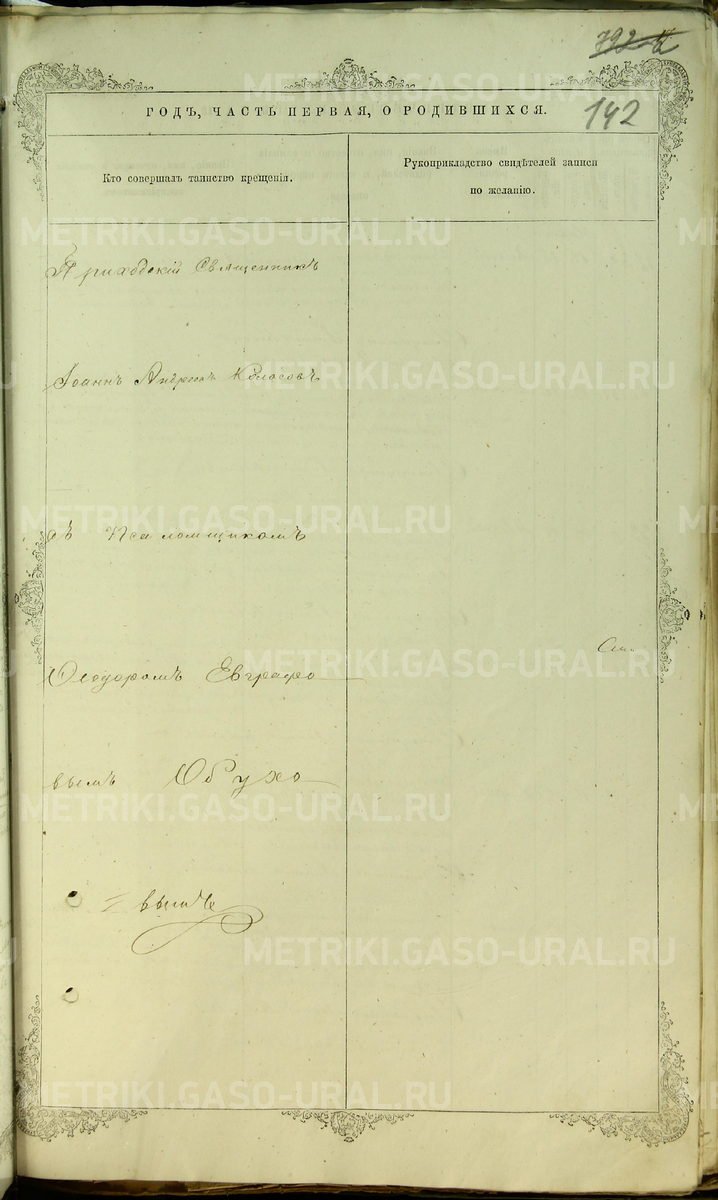 792
142
ГОДЪ, ЧАСТЬ ПЕРВАЯ, О РОДИВШИХСЯ.
Кто совершалъ таинство крещенія.
Рукоприкладство свидѣтелей записи
по желанію.
Приходскій Священникъ
Іоаннъ Андреевъ Колосовъ
съ Псаломщикомъ
Ѳеодоромъ Евграфо
вымъ Обухо
вымъ
METRIKI.GASO-URAL.RU